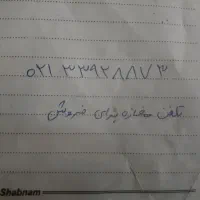 ۰۲۱ ۳۳۹۲۸۸۷۳
تلفن مغازه برای فروش
Shabnam